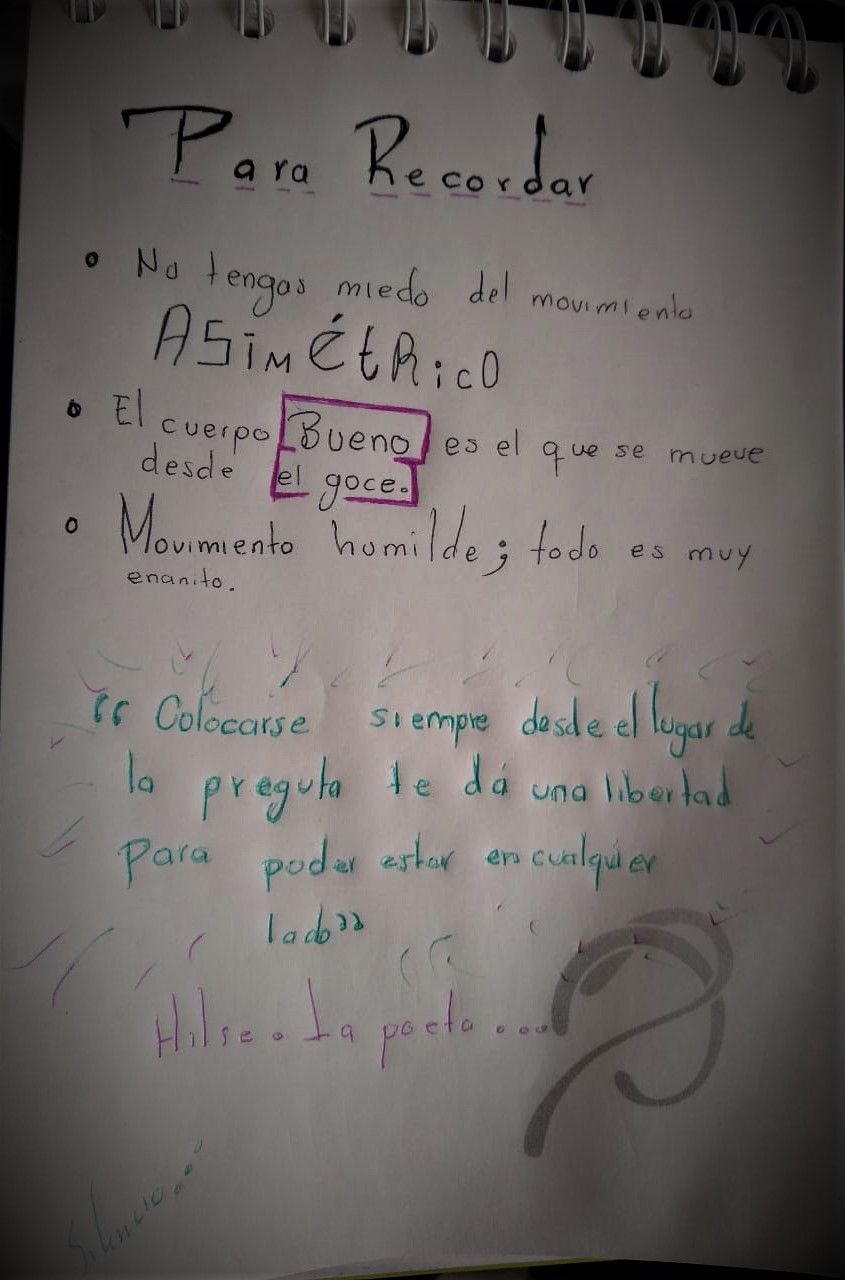 Para Recordar
• No tengas miedo del movimiento
ASimétRicO
• El cuerpo Bueno es el que se mueve
desde el goce.
• Movimiento humilde; todo es muy
enanito.
“Colocarse siempre desde el lugar de
la preguta te dá una libertad
Para poder estar en cualquier
lado”
Hilse. La poeta...
Silencio...